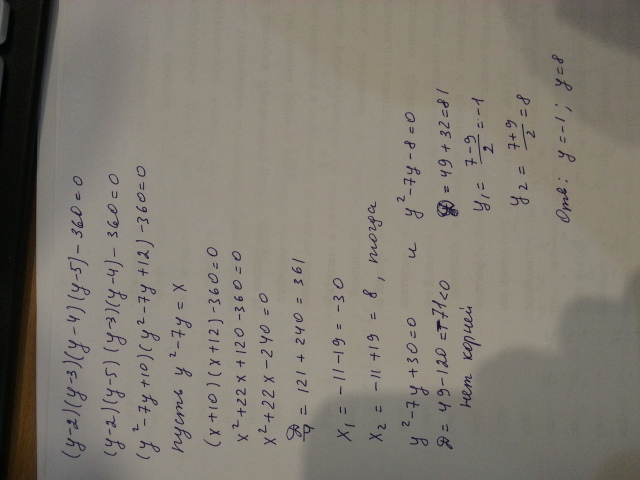 (y-2)(y-3)(y-4)(y-5)-360=0
(y-2)(y-5)(y-3)(y-4)-360=0
(y²-7y+10)(y²-7y+12)-360=0
пусть y²-7y=x
(x+10)(x+12)-360=0
x²+22x+120-360=0
x²+22x-240=0
D/4 = 121+240=361
x₁ = -11-19=-30
x₂ = -11+19=8, тогда
y²-7y+30=0 и y²-7y-8=0
D=49-120=-71<0 D=49+32=81
нет корней y₁ = (7-9)/2 = -1
y₂ = (7+9)/2 = 8
Отв: y=-1; y=8